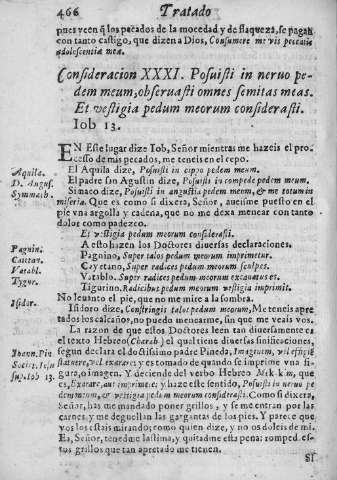 466 Tratado
pues veen q̃ los pecados de la mocedad y de flaqueza, se pagan
con tanto castigo, que dizen a Dios, Consumere me vis peccatis
adolescentiæ meæ.
Consideracion XXXI. Posuisti in neruo pe-
dem meum, obseruasti omnes semitas meas.
Et vestigia pedum meorum considerasti.
Iob 13.
EN Este lugar dize Iob, Señor mientras me hazeis el pro-
cesso de mis pecados, me teneis en el cepo.
Aquila.
El Aquila dize, Posuisti in cippo pedem meum.
D. Augus.
El padre san Agustin dize, Posuisti in compede pedem meum.
Symmach.
Simaco dize, Posuisti in angustia pedem meum, & me totum in
miseria. Que es como si dixera, Señor, aueisme puesto en el
pie vna argolla y cadena, que no me dexa menear con tanto
dolor como padezco.
Et vestigia pedum meorum considerasti.
A esto hazen los Doctores diuersas declaraciones.
Pagnin.
Pagnino, Super talos pedum meorum imprimetur.
Caietan.
Cayetano, Super radices pedum meorum sculpes.
Vatabl.
Vatablo, Super radices pedum meorum excauatus es.
Tygur.
Tigurino, Radicibus pedum meorum vestigia imprimit.
No leuanto el pie, que no me mire a la sombra.
Isidor.
Isidoro dize, Constringis talos pedum meorum, Me teneis apre-
tados los calcaños, no puedo menearme, sin que me veais vos.
La razon de que estos Doctores leen tan diuersamente es
el texto Hebreo (Charab) el qual tiene diuersas sinificaciones,
Ioann. Pin.
segun declara el doctissimo padre Pineda, Imaginem, vel effigiē
Societ. Iesu
statuere, vel exarare y es tomado de quando se imprime vna fi-
sup. Iob 13.
gura, o imagen. Y deciende del verbo Hebreo
es, Exarare, aut imprimere; y haze este sentido, Posuisti in neruo pe-
dem meum, & vestigia pedum meorum considerasti. Como si dixera,
Señor, has me mandado poner grillos, y se me entran por las
carnes y me deguellan las gargantas de los pies. Y parece que
vos los estais mirando; como quien dize, y no os doleis de mi.
Ea, Señor, tenedme lastima, y quitadme esta pena: romped es-
tos grillos que tan apretado me tienen.
SI